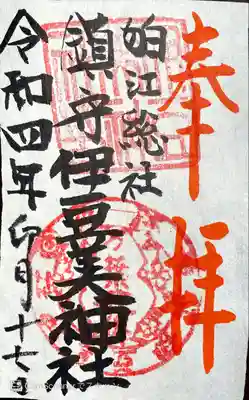 奉拝
狛江総社
鎮守伊豆美神社
令和四年卯月十七日